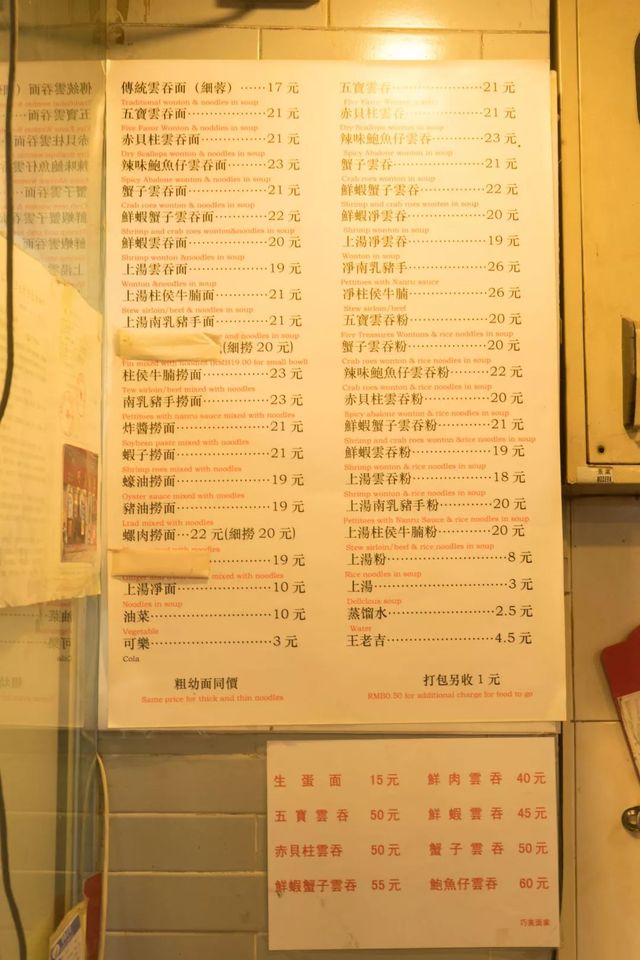 傳統雲吞面（細蓉）……17 元
Traditional wonton & noodles in soup
五寶雲吞面……21 元
Five Favor Wonton & noddles in soup
赤貝柱雲吞面……21 元
Dry Scallops wonton & noodles in soup
辣味鮑魚仔雲吞面……23 元
Spicy Abalone wonton & noodles in soup
蟹子雲吞面……21 元
Crab roes wonton & noodles in soup
鮮蝦蟹子雲吞面……22 元
Shrimp and crab roes wonton&noodles in soup
鮮蝦雲吞面……20 元
Shrimp wonton &noodles in soup
上湯雲吞面……19 元
Wonton &noodles in soup
上湯柱侯牛腩面……21 元
Stew sirloin/beef & noodles in soup
上湯南乳豬手面……21 元
and noodles in soup
(細撈 20 元)
柱侯牛腩撈面……23 元
Tew sirloin/beef mixed with noodles
南乳豬手撈面……23 元
Pettitoes with nanru sauce mixed with noodles
炸醬撈面……21 元
Soybean paste mixed with noodles
蝦子撈面……21 元
Shrimp roes mixed with noodles
蠔油撈面……19 元
Oyster sauce mixed with noodles
豬油撈面……19 元
Lrad mixed with noodles
螺肉撈面…22 元(細撈 20 元)
……19 元
mixed with noodles
上湯凈面……10 元
Noodles in soup
油菜……10 元
Vegetable
可樂……3 元
Cola
粗幼面同價
Same price for thick and thin noodles
五寶雲吞……21 元
赤貝柱雲吞……21 元
Dry Scallops wonton & noodles in soup
辣味鮑魚仔雲吞……23 元
Spicy Abalone wonton
蟹子雲吞……21 元
Crab roes wonton & noodles in soup
鮮蝦蟹子雲吞……22 元
Shrimp and crab roes wonton in soup
鮮蝦凈雲吞……20 元
Shrimp wonton in soup
上湯凈雲吞……19 元
Wonton in soup
凈南乳豬手……26 元
Pettitoes with Nanru sauce
凈柱侯牛腩……26 元
Stew sirloin/beef
五寶雲吞粉……20 元
Five Treasures Wontons & rice noddles in soup
蟹子雲吞粉……20 元
Crab roes wonton & rice noodles in soup
辣味鮑魚仔雲吞粉……22 元
Crab roes wonton & rice noodles in soup
赤貝柱雲吞粉……20 元
Spicy abalone wonton & rice noodles in soup
鮮蝦蟹子雲吞粉……21 元
Shrimp and crab roes wonton &rice noodles in soup
鮮蝦雲吞粉……19 元
Shrimp wonton & rice noodles in soup
上湯雲吞粉……18 元
Shrimp wonton & rice noodles in soup
上湯南乳豬手粉……20 元
Pettitoes with Nanru Sauce & rice noodles in soup
上湯柱侯牛腩粉……20 元
Stew sirloin/beef & rice noodles in soup
上湯粉……8 元
Rice noodles in soup
上湯……3 元
Delicious soup
蒸馏水……2.5 元
Water
王老吉……4.5 元
打包另收 1 元
RMB0.50 for additional charge for food to go
生蛋面 15元 鮮肉雲吞 40元
五寶雲吞 50元 鮮蝦雲吞 45元
赤貝柱雲吞 50元 蟹子雲吞 50元
鮮蝦蟹子雲吞 55元 鮑魚仔雲吞 60元